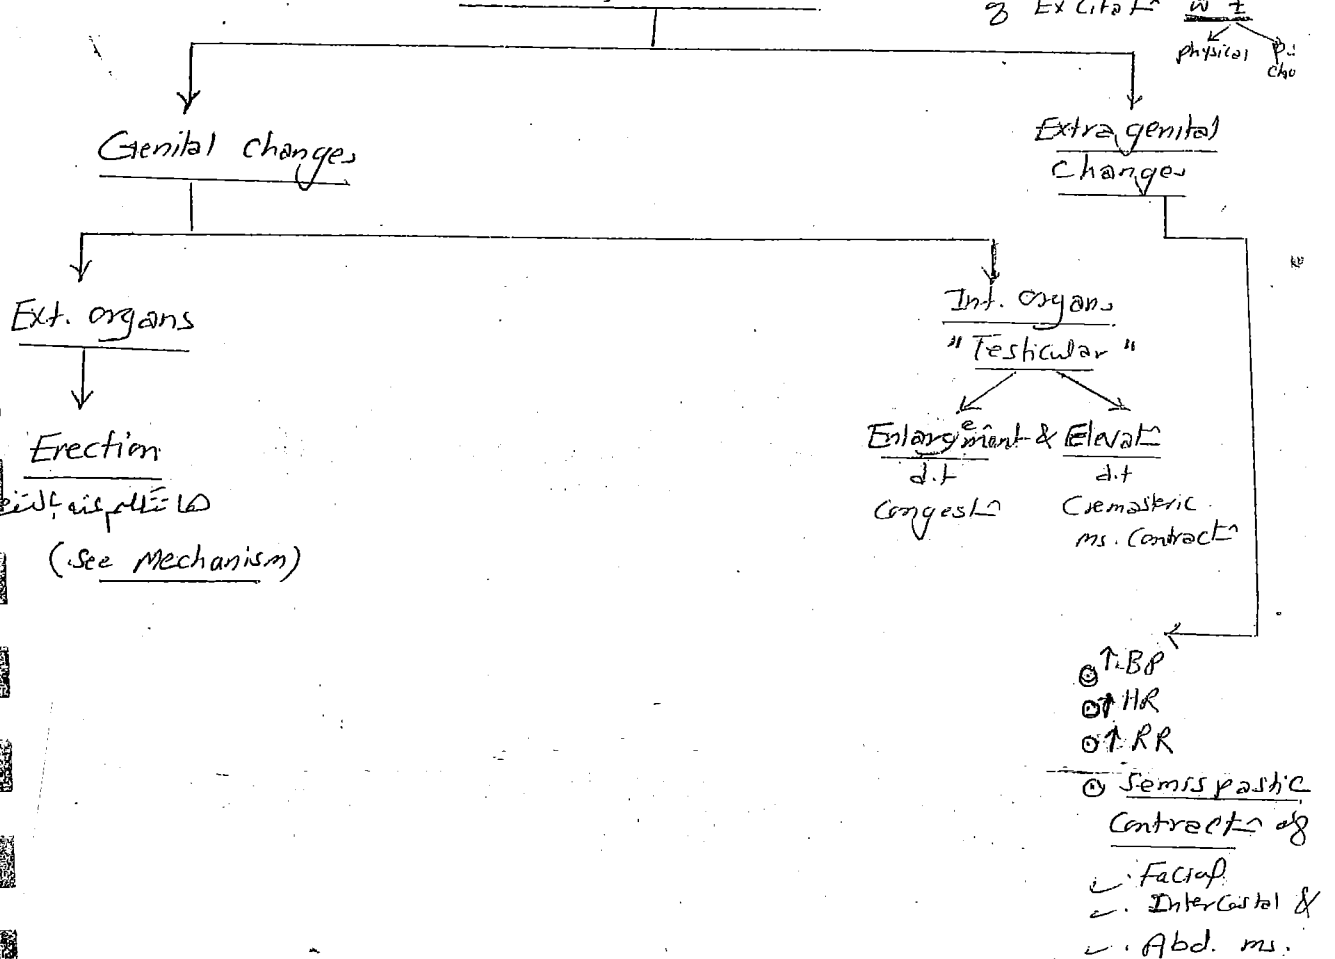 of Excitatn
physical
Genital changes
Extra genital
Changes
Ext. organs
Int. organs
"Testicular"
Erection
Enlargement & Elevatn
d.t
d.t
Congestn
Cremasteric
ms. Contractn
(see Mechanism)
↑ BP
↑ HR
↑ RR
Semispastic
Contractn of
Facial
Intercostal &
Abd. ms.